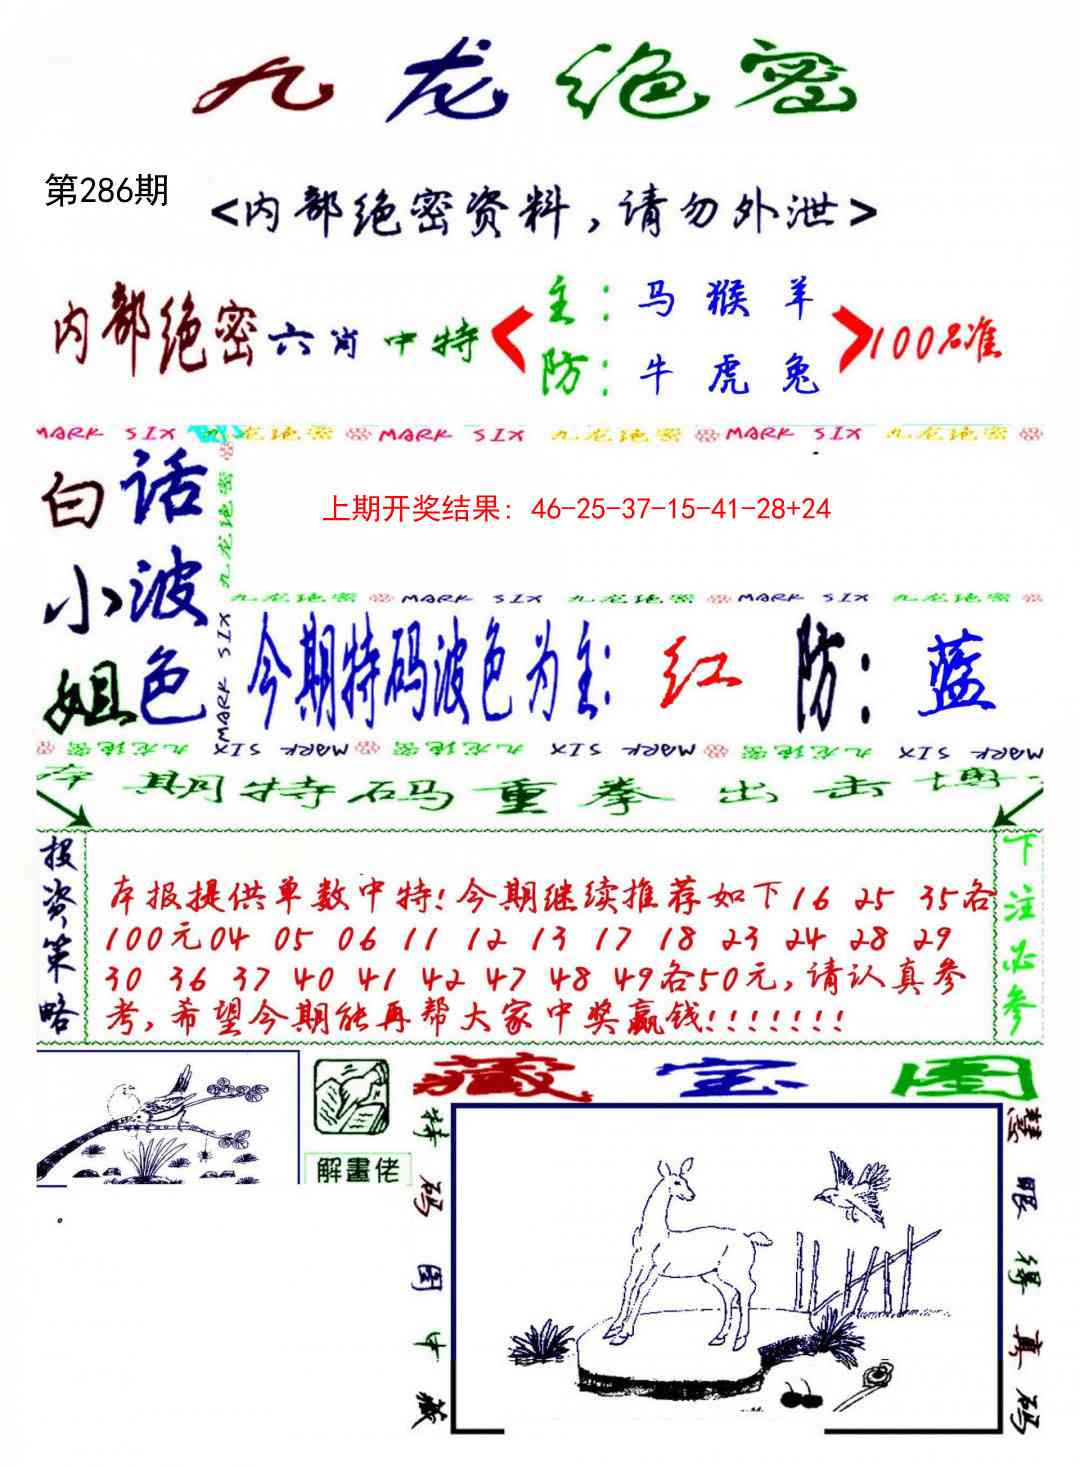 九龙绝密
第286期
<内部绝密资料,请勿外泄>
内部绝密六肖中特
主:马猴羊
防:牛虎兔
100%准
MARK SIX 九龙绝密 MARK SIX 九龙绝密 MARK SIX 九龙绝密
白话
小波
姐色
九龙绝密
MARK SIX
上期开奖结果: 46-25-37-15-41-28+24
九龙绝密 MARK SIX 九龙绝密 MARK SIX 九龙绝密
今期特码波色为主:红 防:蓝
九龙绝密 MARK SIX 九龙绝密 MARK SIX 九龙绝密 MARK SIX
本期特码重拳出击博
投资策略
本报提供单数中特!今期继续推荐如下16 25 35各
100元04 05 06 11 12 13 17 18 23 24 28 29
30 36 37 40 41 42 47 48 49各50元,请认真参
考,希望今期能再帮大家中奖赢钱!!!!!!!
下注必参
解畫佬
藏宝图
特码图中藏
慧眼得真码